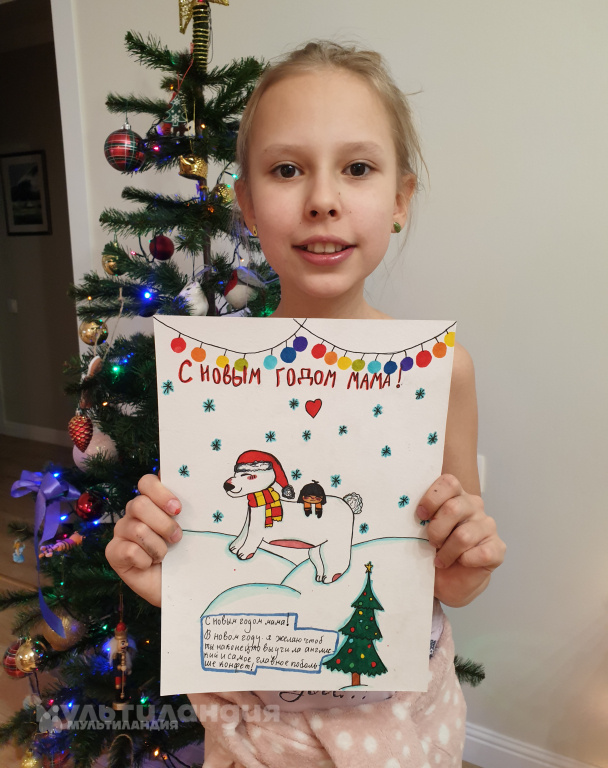 С НОВЫМ ГОДОМ МАМА!
С новым годом мама!
В новом году, я желаю чтоб
ты наконец то выучила англис
кий и самое главное поболь
ше конфет!
МУЛЬТИЛАНДИЯ
МУЛЬТИЛАНДИЯ